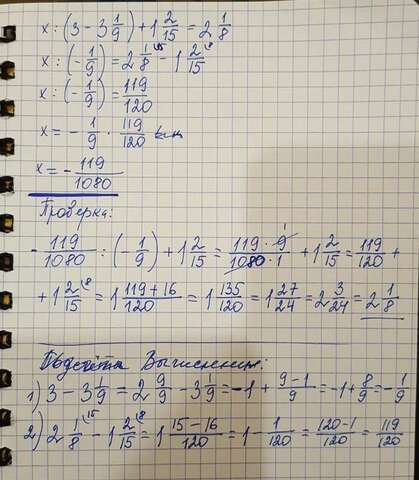 x : (3 - 3 1/9) + 1 2/15 = 2 1/8
x : (- 1/9) = 2 1/8 \15 - 1 2/15 \8
x : (- 1/9) = 119/120
x = - 1/9 · 119/120
x = - 119/1080
Проверка:
- 119/1080 : (- 1/9) + 1 2/15 = 119 · 9/1080 · 1 + 1 2/15 = 119/120 +
+ 1 2/15 \8 = 1 119 + 16/120 = 1 135/120 = 1 27/24 = 2 3/24 = 2 1/8
Вычисления:
1) 3 - 3 1/9 = 2 9/9 - 3 1/9 = -1 + 9 - 1/9 = -1 + 8/9 = - 1/9
2) 2 1/8 \15 - 1 2/15 \8 = 1 15 - 16/120 = 1 - 1/120 = 120 - 1/120 = 119/120